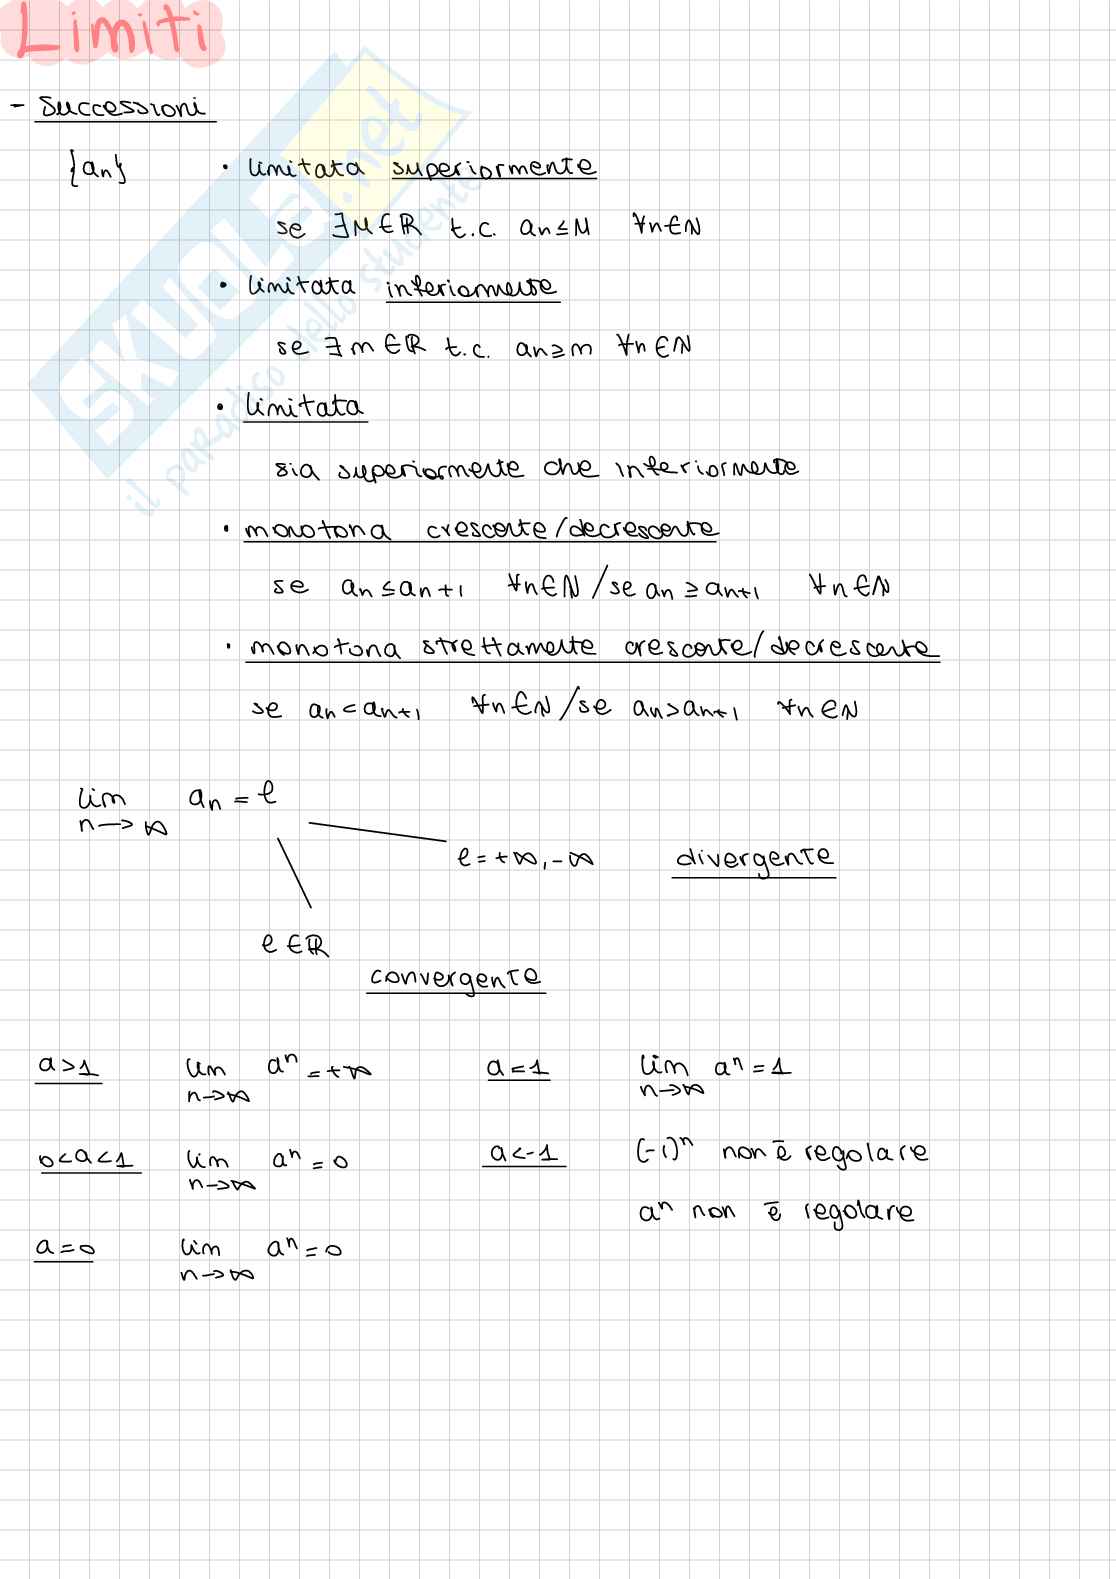 Limiti
- Successioni
{an} • limitata superiormente
se ∃M∈ℝ t.c. an≤M ∀n∈ℕ
• limitata inferiormente
se ∃m∈ℝ t.c. an≥m ∀n∈ℕ
• limitata
sia superiormente che inferiormente
• monotona crescente/decrescente
se an≤an+1 ∀n∈ℕ/se an≥an+1 ∀n∈ℕ
• monotona strettamente crescente/decrescente
se an<an+1 ∀n∈ℕ/se an>an+1 ∀n∈ℕ
lim an=ℓ
n→∞
ℓ=+∞,-∞ divergente
ℓ∈ℝ
convergente
a>1 lim aⁿ=+∞ a=1 lim aⁿ=1
n→∞ n→∞
0<a<1 lim aⁿ=0 a<-1 (-1)ⁿ non è regolare
n→∞
aⁿ non è regolare
a=0 lim aⁿ=0
n→∞
SKUOLA.net
il paradiso dello studente